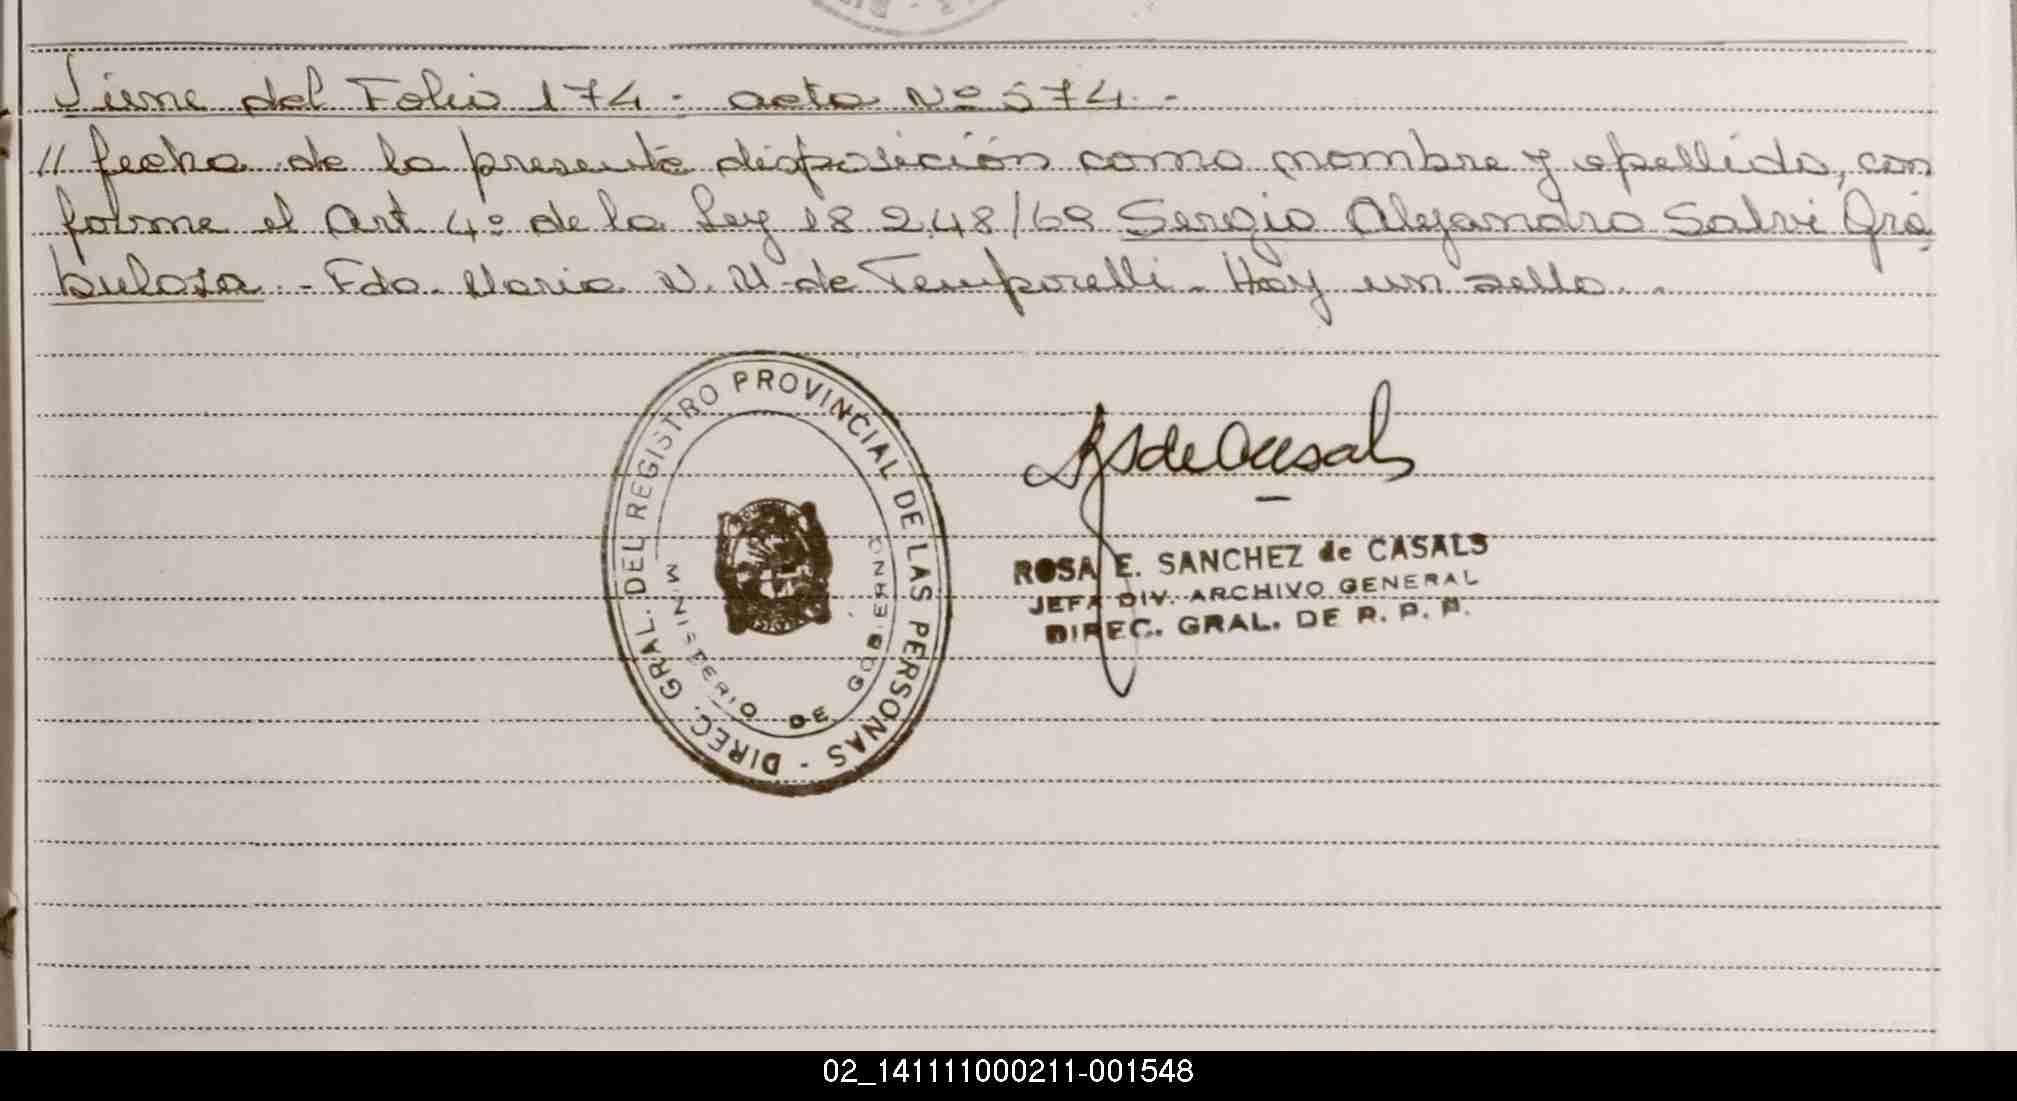 Viene del Folio 174 - acta Nº 574. -
// fecha de la presente disposición como nombre y apellido, con
forme el Art. 4º de la Ley 18.248/69 Sergio Alejandro Salvi Grá
bulosa. - Fdo. Maria N. M. de Temporelli. Hay un sello. .
DIREC. GRAL. DEL REGISTRO PROVINCIAL DE LAS PERSONAS -
MINISTERIO DE GOBIERNO
RS de Casals
ROSA E. SANCHEZ de CASALS
JEFA DIV. ARCHIVO GENERAL
DIREC. GRAL. DE R. P. P.
02_141111000211-001548